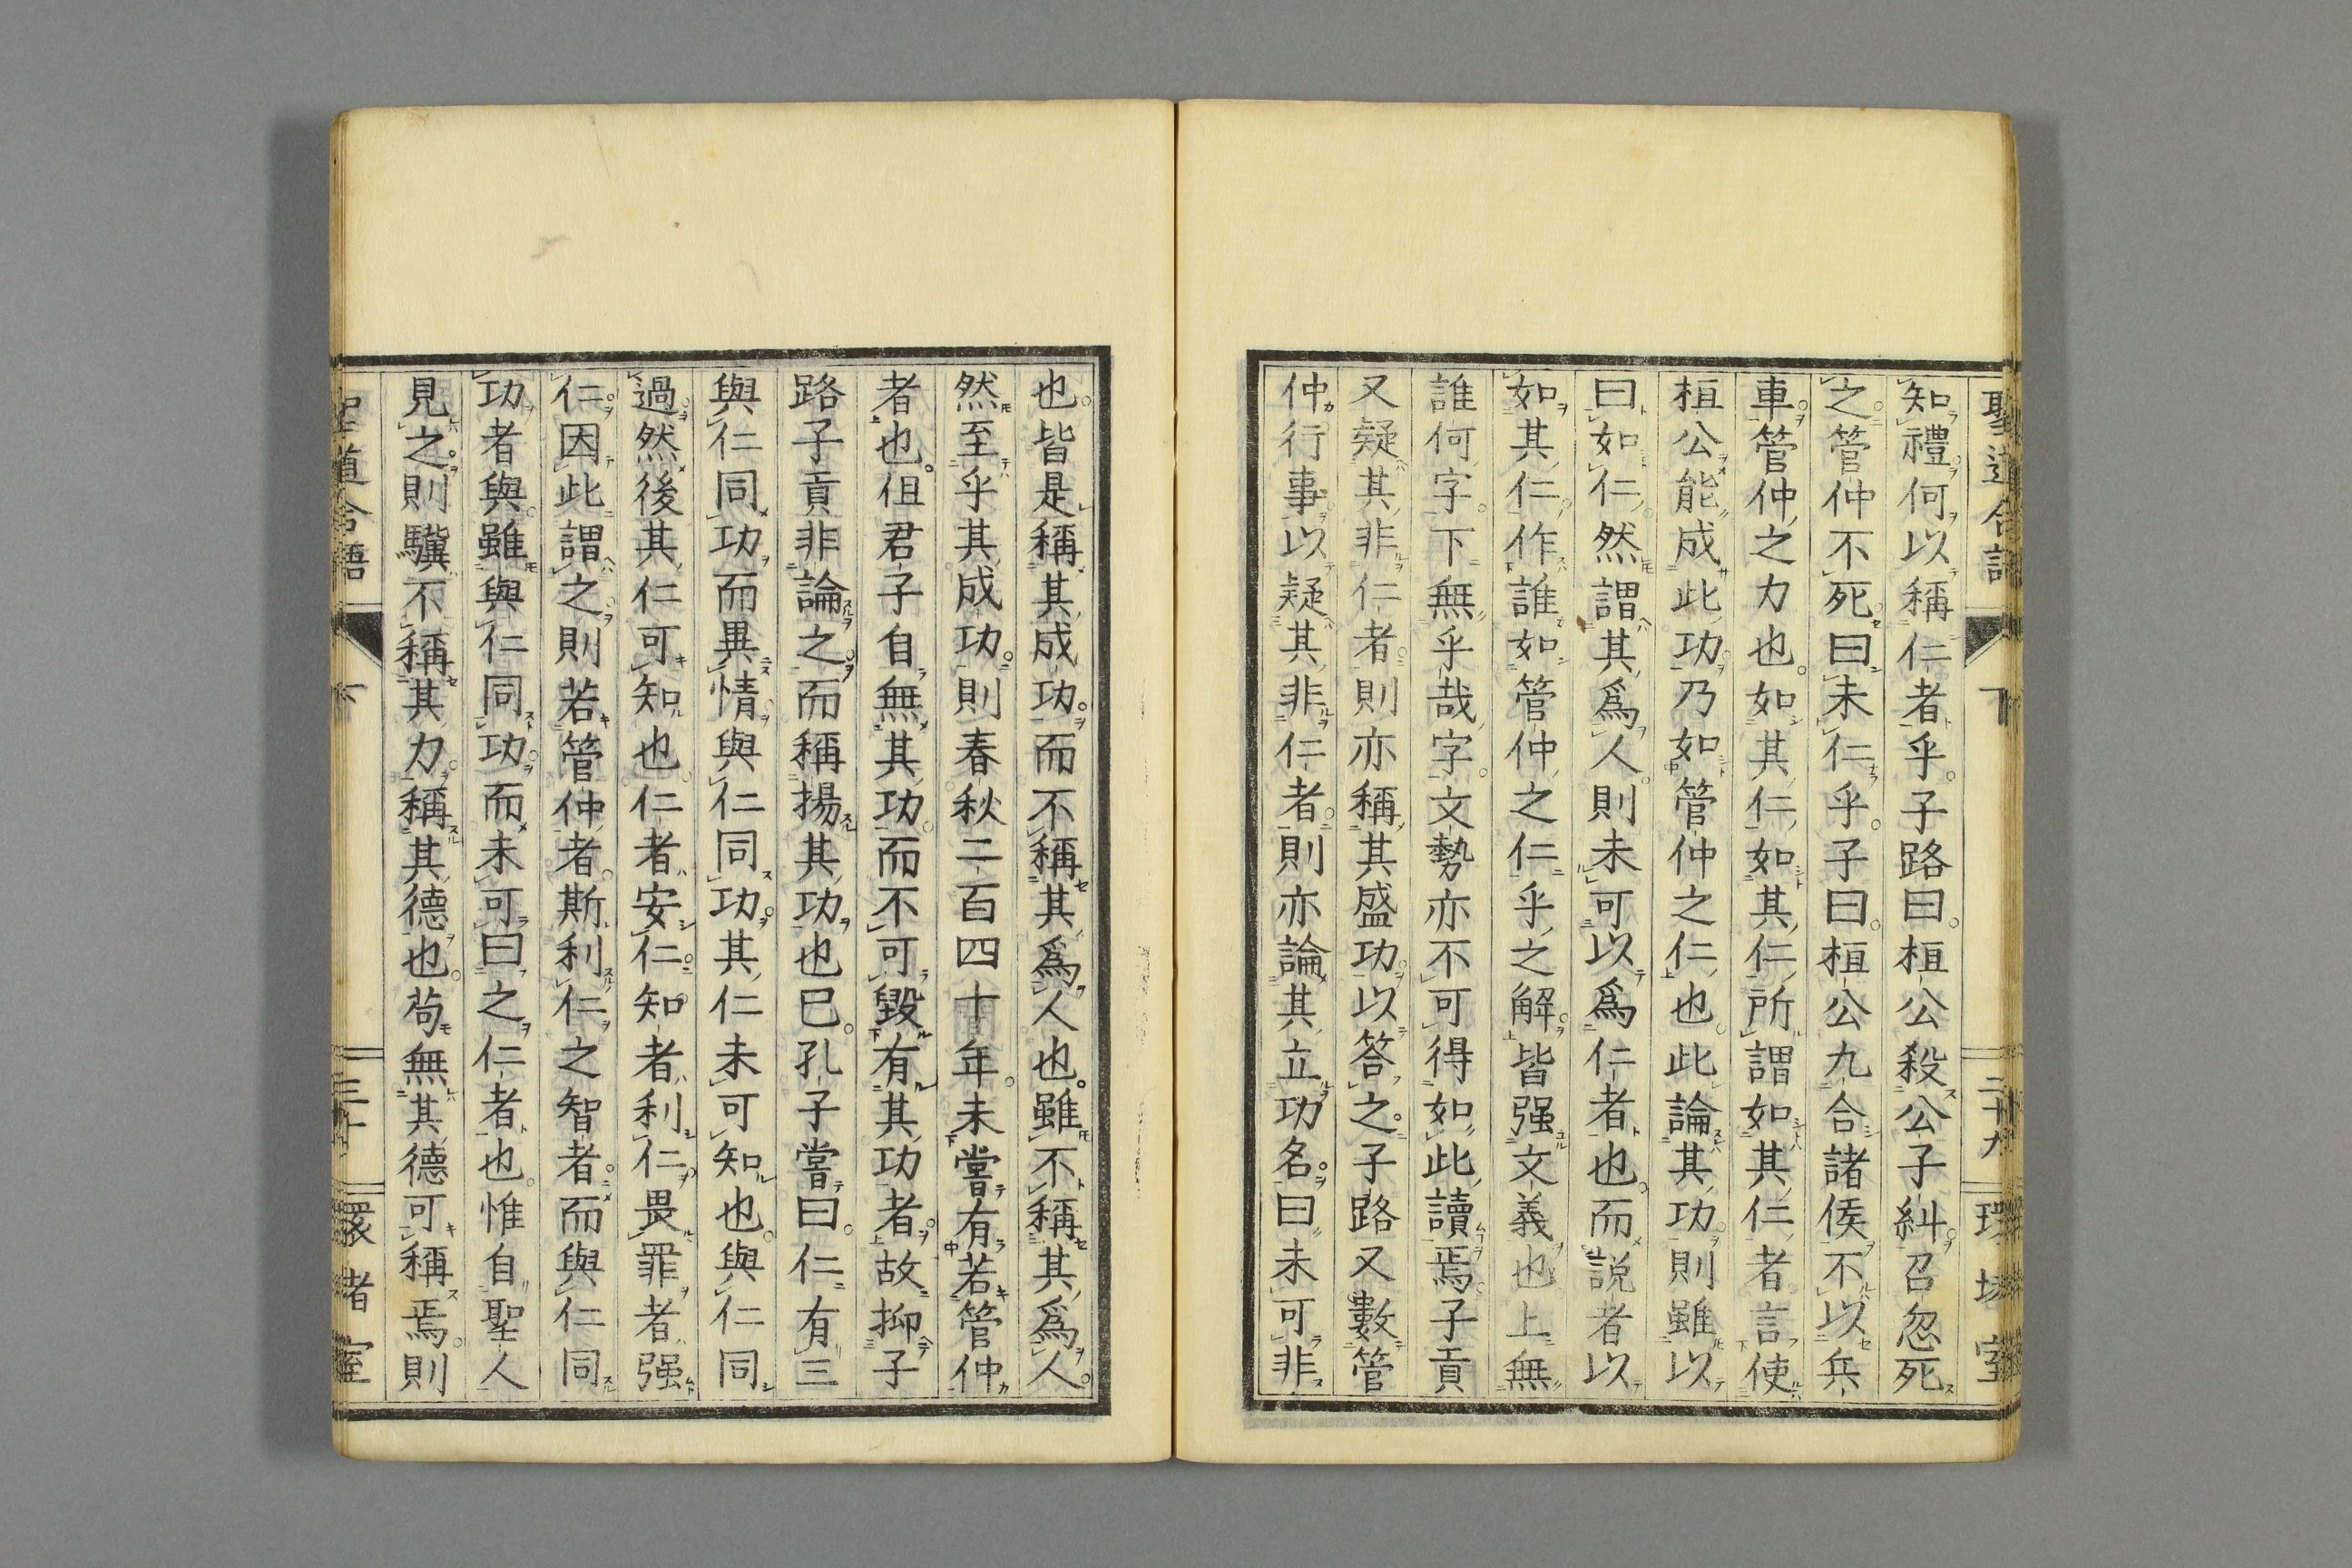 知禮何以稱仁者乎子路曰桓公殺公子糾召忽死
之管仲不死曰未仁乎子曰桓公九合諸侯不以兵
車管仲之力也如其仁如其仁所謂如其仁者言使
桓公能成此功乃如管仲之仁也此論其功則雖以
曰如仁然謂其爲人則未可以爲仁者也而説者以
如其仁作誰如管仲之仁乎之解皆强文義也上無
誰何字下無乎哉字文勢亦不可得如此讀焉子貢
又疑其非仁者則亦稱其盛功以答之子路又數管
仲行事以疑其非仁者則亦論其立功名曰未可非
也皆是稱其成功而不稱其爲人也雖不稱其爲人
然至乎其成功則春秋二百四十年未嘗有若管仲
者也伹君子自無其功而不可毀有其功者故抑子
路子貢非論之而稱揚其功也巳孔子嘗曰仁有三
與仁同功而異情與仁同功其仁未可知也與仁同
過然後其仁可知也仁者安仁知者利仁畏罪者强
仁因此謂之則若管仲者斯利仁之智者而與仁同
功者與雖與仁同功而未可曰之仁者也惟自聖人
見之則驥不稱其力稱其德也苟無其德可稱焉則